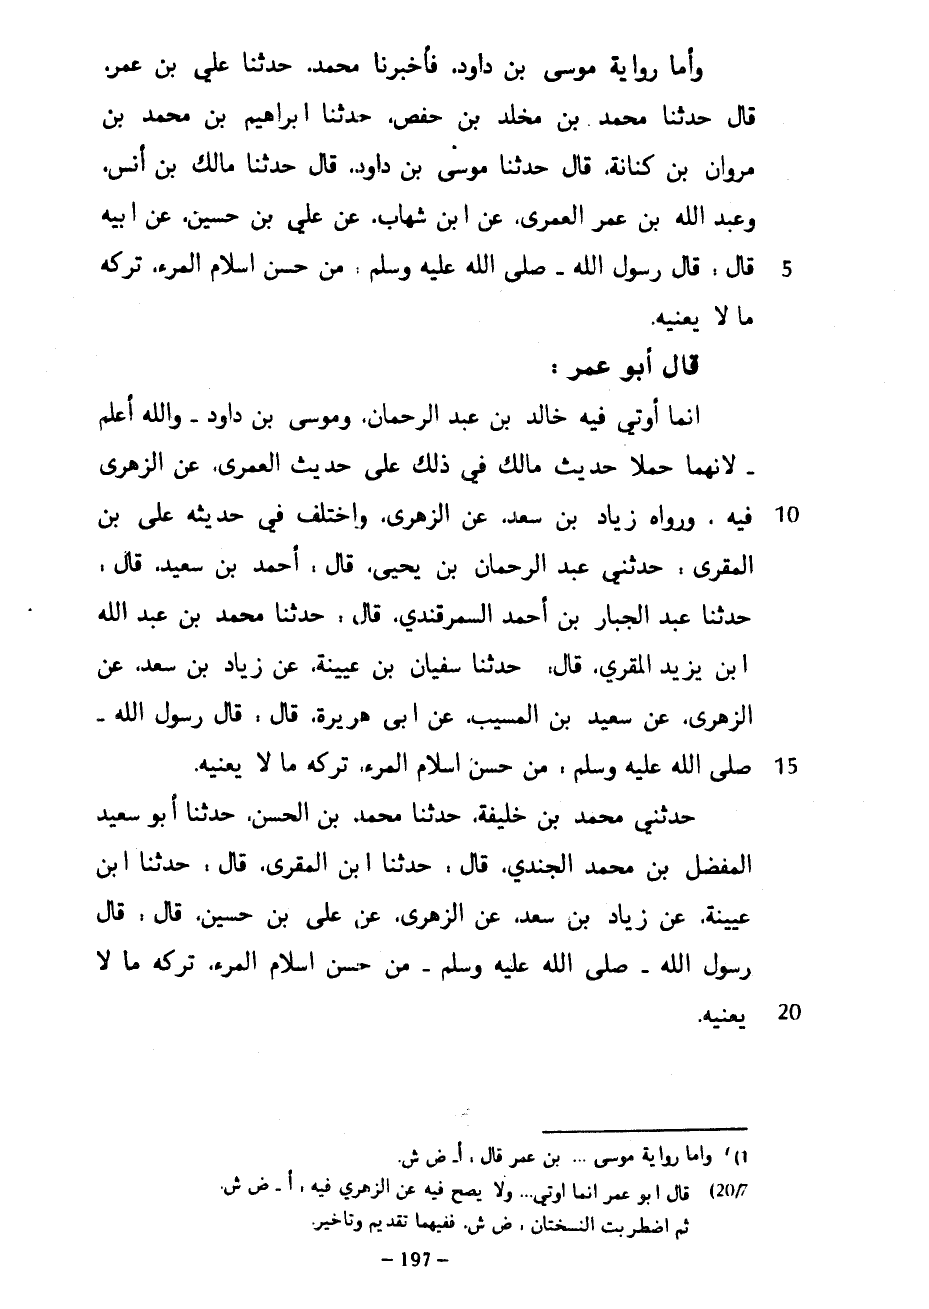 وأما رواية موسى بن داود، فأخبرنا محمد، حدثنا علي بن عمر،
قال حدثنا محمد بن مخلد بن حفص، حدثنا ابراهيم بن محمد بن
مروان بن كنانة، قال حدثنا موسى بن داود، قال حدثنا مالك بن أنس،
وعبد الله بن عمر العمرى، عن ابن شهاب، عن علي بن حسين، عن ابيه
5 قال : قال رسول الله ـ صلى الله عليه وسلم : من حسن اسلام المرء، تركه
ما لا يعنيه.
قال أبو عمر :
انما أوتي فيه خالد بن عبد الرحمان، وموسى بن داود ـ والله أعلم
ـ لانهما حملا حديث مالك في ذلك على حديث العمرى، عن الزهرى
10 فيه . ورواه زياد بن سعد، عن الزهرى، واختلف في حديثه على بن
المقرى : حدثني عبد الرحمان بن يحيى، قال : أحمد بن سعيد، قال :
حدثنا عبد الجبار بن أحمد السمرقندي، قال : حدثنا محمد بن عبد الله
ابن يزيد المقري، قال: حدثنا سفيان بن عيينة، عن زياد بن سعد، عن
الزهرى، عن سعيد بن المسيب، عن ابى هريرة، قال : قال رسول الله ـ
15 صلى الله عليه وسلم : من حسن اسلام المرء، تركه ما لا يعنيه.
حدثني محمد بن خليفة، حدثنا محمد بن الحسن، حدثنا أبو سعيد
المفضل بن محمد الجندي، قال : حدثنا ابن المقرى، قال : حدثنا ابن
عيينة، عن زياد بن سعد، عن الزهرى، عن على بن حسين، قال : قال
رسول الله ـ صلى الله عليه وسلم ـ من حسن اسلام المرء، تركه ما لا
20 يعنيه.
1) واما رواية موسى ... بن عمر قال : أ ـ ض ش.
20/7) قال ابو عمر انما اوتي... ولا يصح فيه عن الزهري فيه : أ ـ ض ش.
ثم اضطربت النسختان : ض ش، ففيهما تقديم وتاخير.
– 197 –